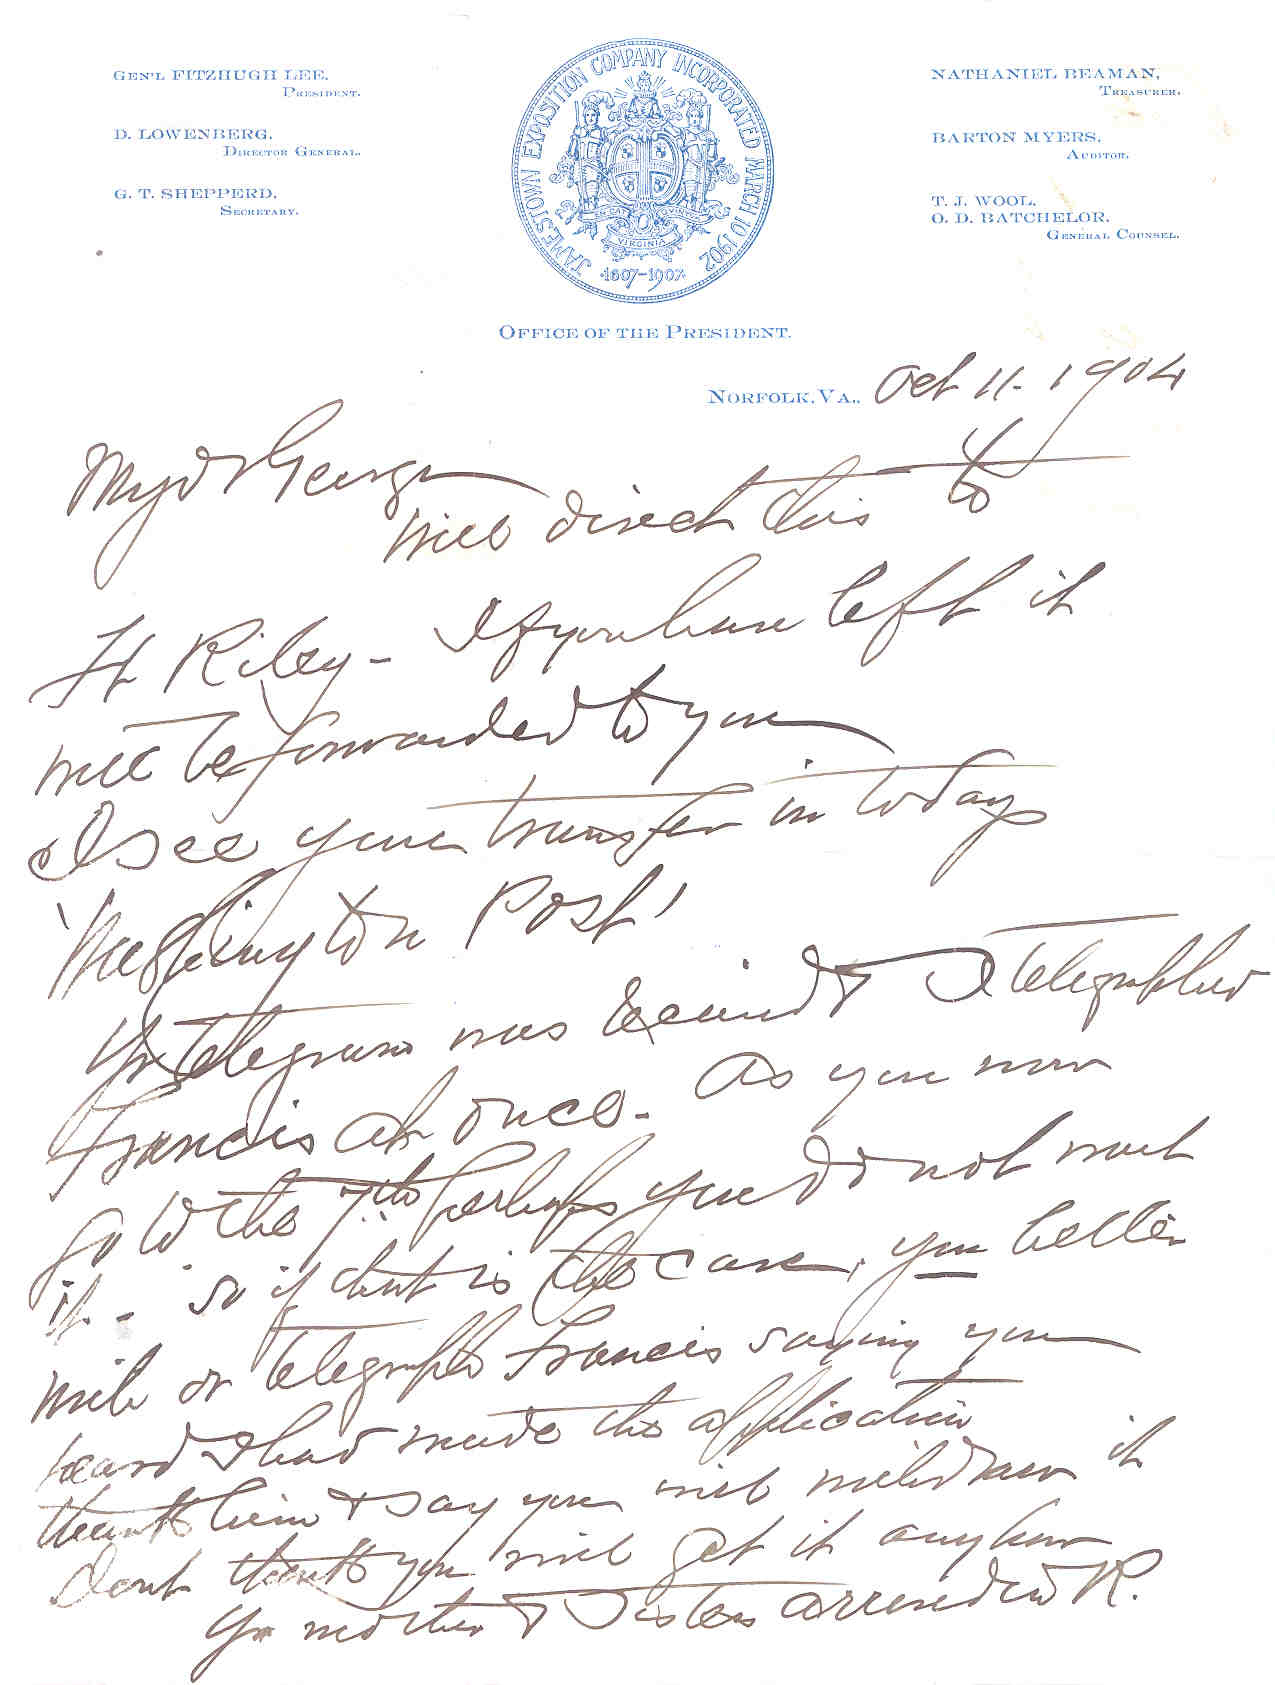 GEN'L FITZHUGH LEE,
PRESIDENT.
D. LOWENBERG,
DIRECTOR GENERAL.
G. T. SHEPPERD,
SECRETARY.
JAMESTOWN EXPOSITION COMPANY INCORPORATED MARCH 10 1902
VIRGINIA
·1607-1907·
NATHANIEL BEAMAN,
TREASURER.
BARTON MYERS,
AUDITOR.
T. J. WOOL,
O. D. BATCHELOR,
GENERAL COUNSEL.
OFFICE OF THE PRESIDENT.
NORFOLK, VA., Oct 11- 1904
My dr George
will direct this to
Ft Riley - If you have left it
will be forwarded to you
I see your transfer in todays
'Washington Post'
Yr telegram was received & I telegraphed
Francis at once - As you now
go to the 7th perhaps you do not want
it - so if that is the case, you better
write or telegraph Francis saying you
heard I had made the application
thank him & say you will withdraw it
Dont think you will get it anyhow
Yr mother & Sisters arrived in R.